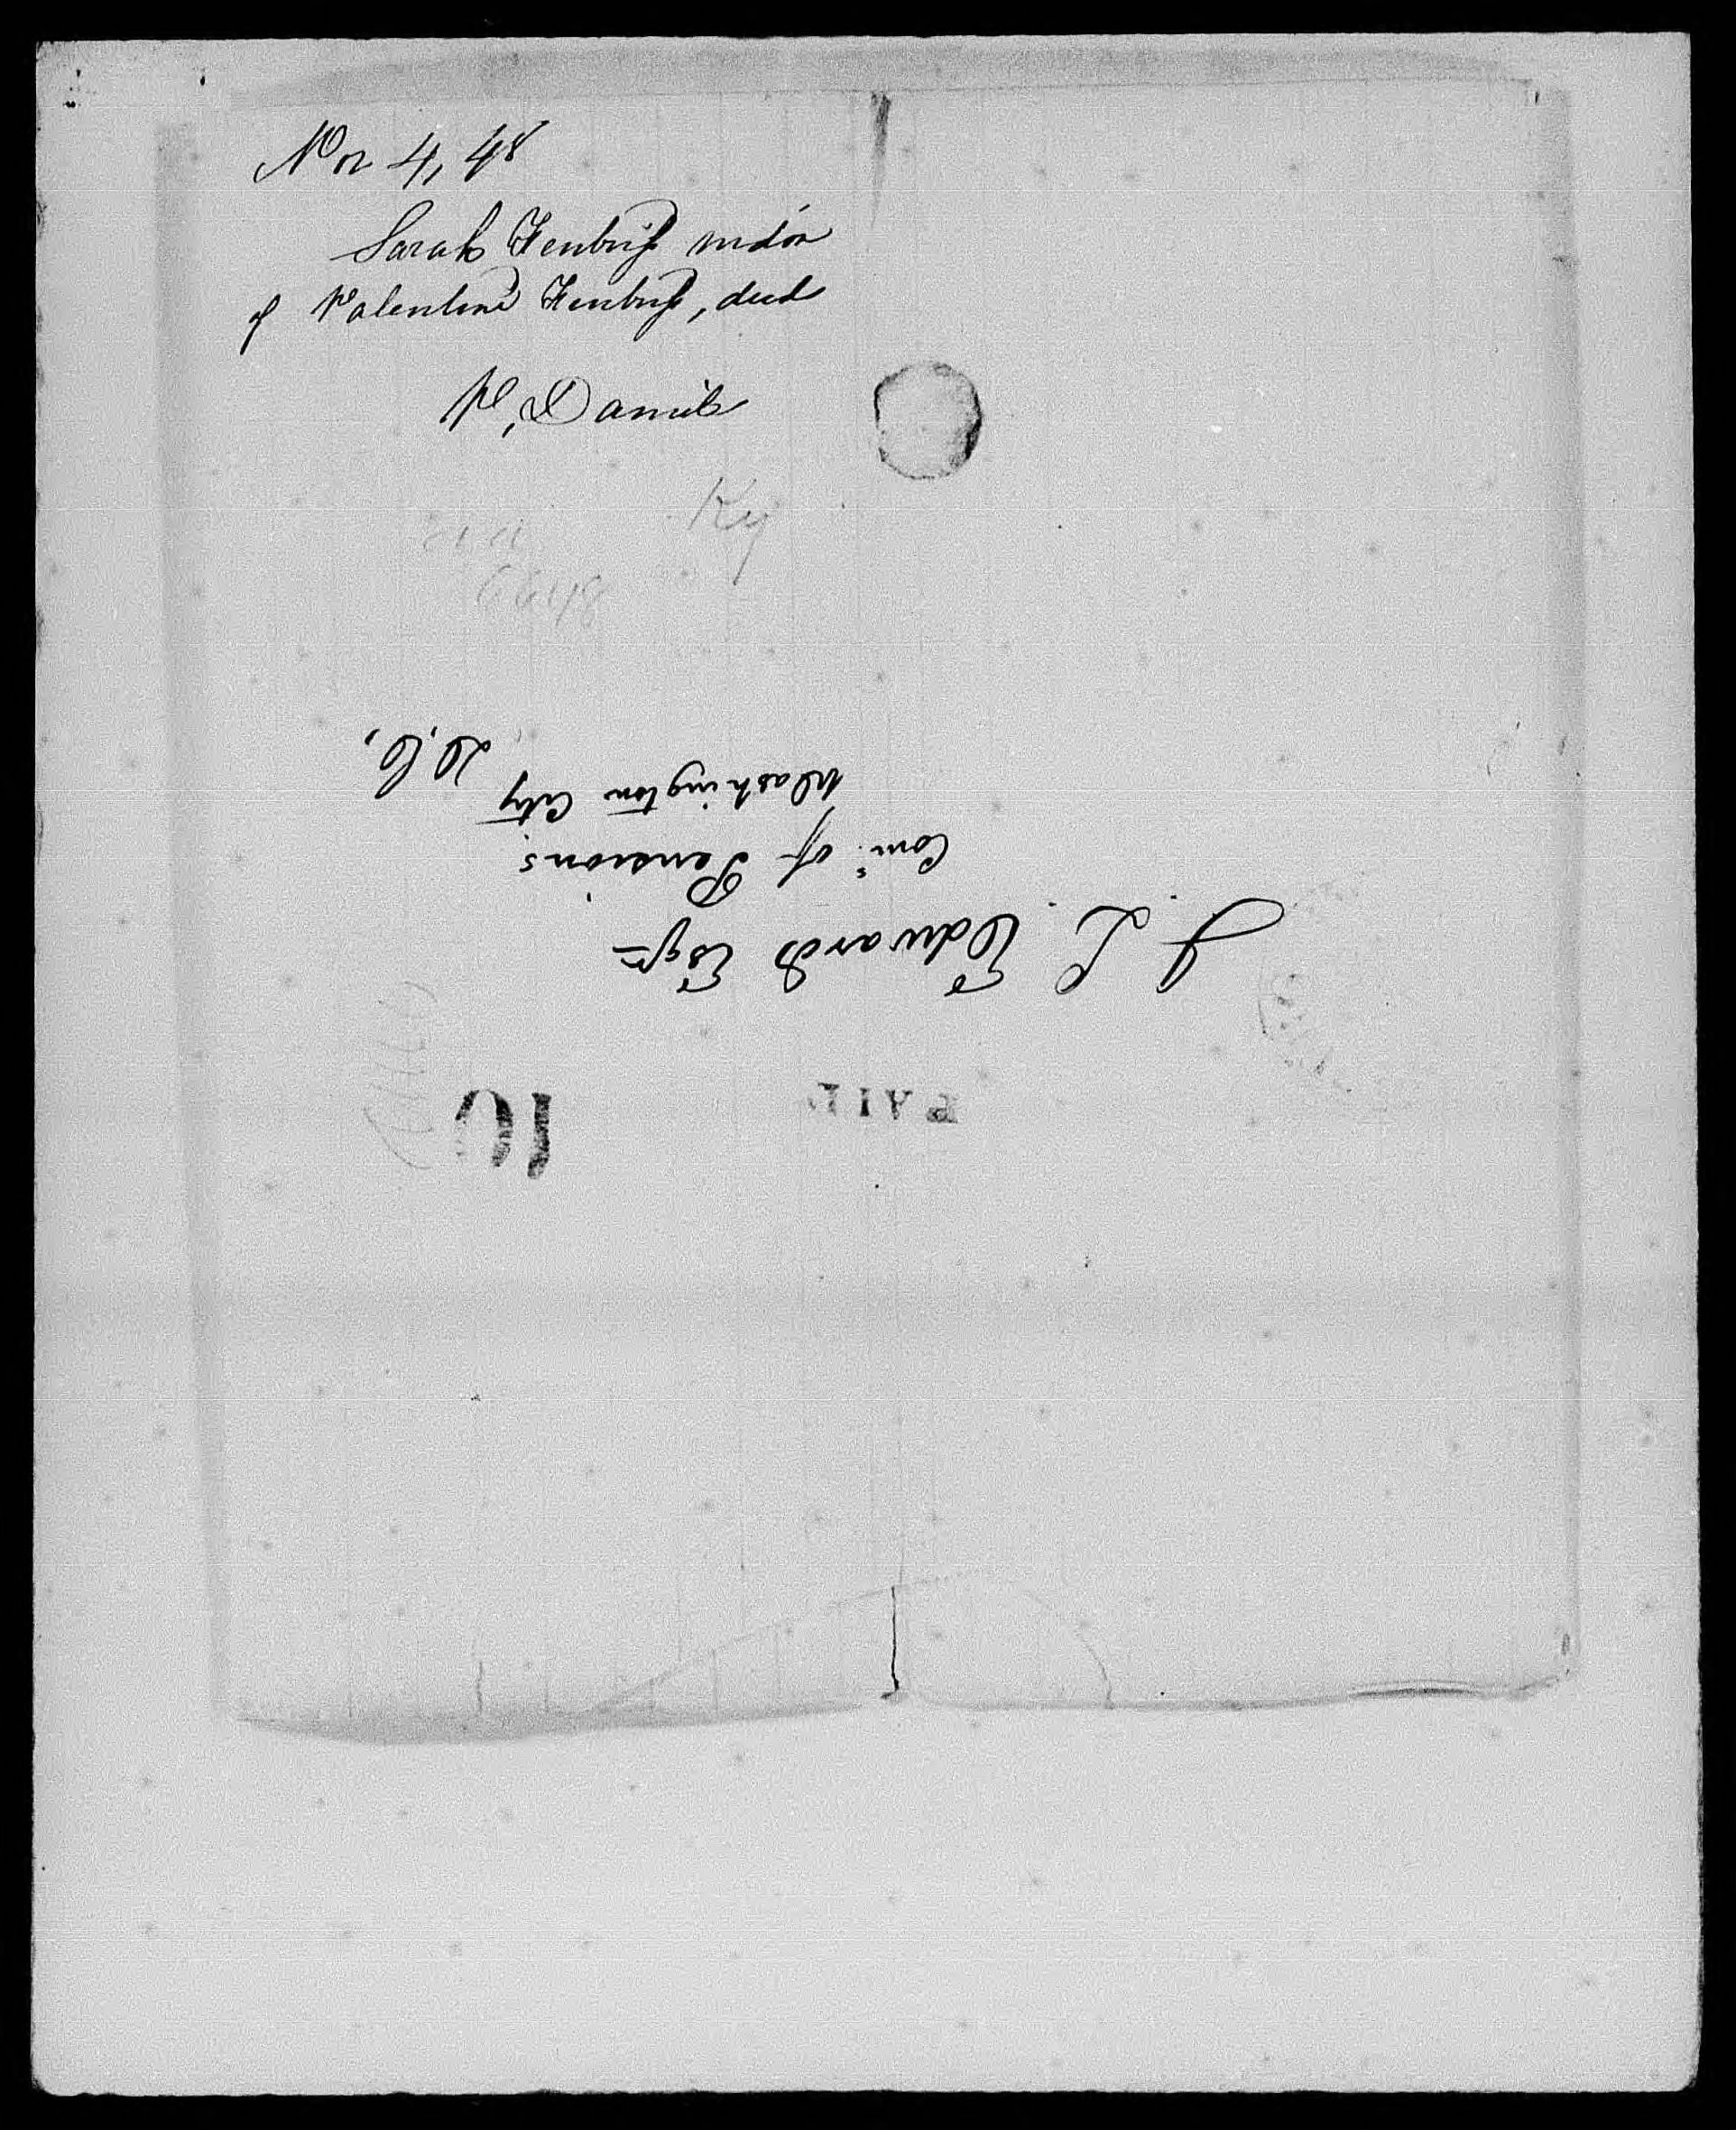 Nov 4, 48
Sarah widow
of Valentine decd
W, Daniel
Ky
6648
J. L. Edwards Esqr
Coms of Pensions
Washington City D, C,
PAID
10